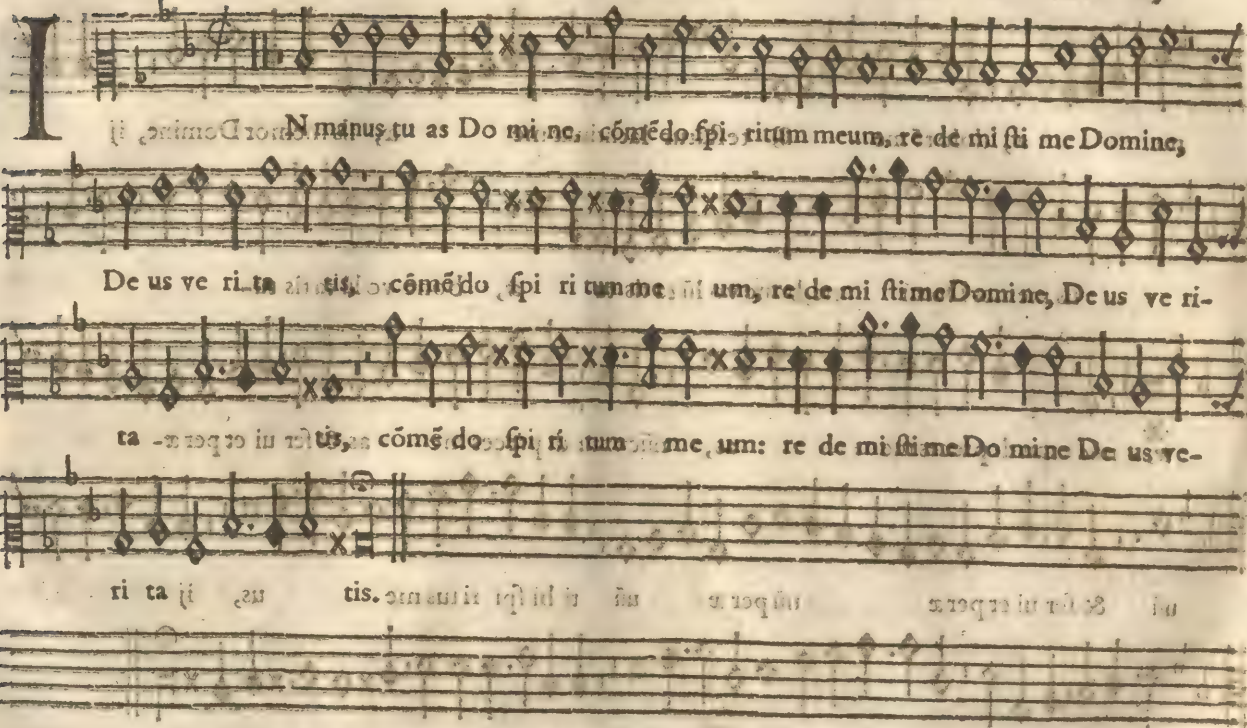 IN manus tu as Do mi ne, cōmēdo ſpi ritum meum, re de mi ſti me Domine,
De us ve ri ta tis, cōmēdo ſpi ri tum me um, re de mi ſti me Domine, De us ve ri-
ta tis, cōmē do ſpi ri tum me um: re de mi ſti me Do mine De us ve-
ri ta tis.